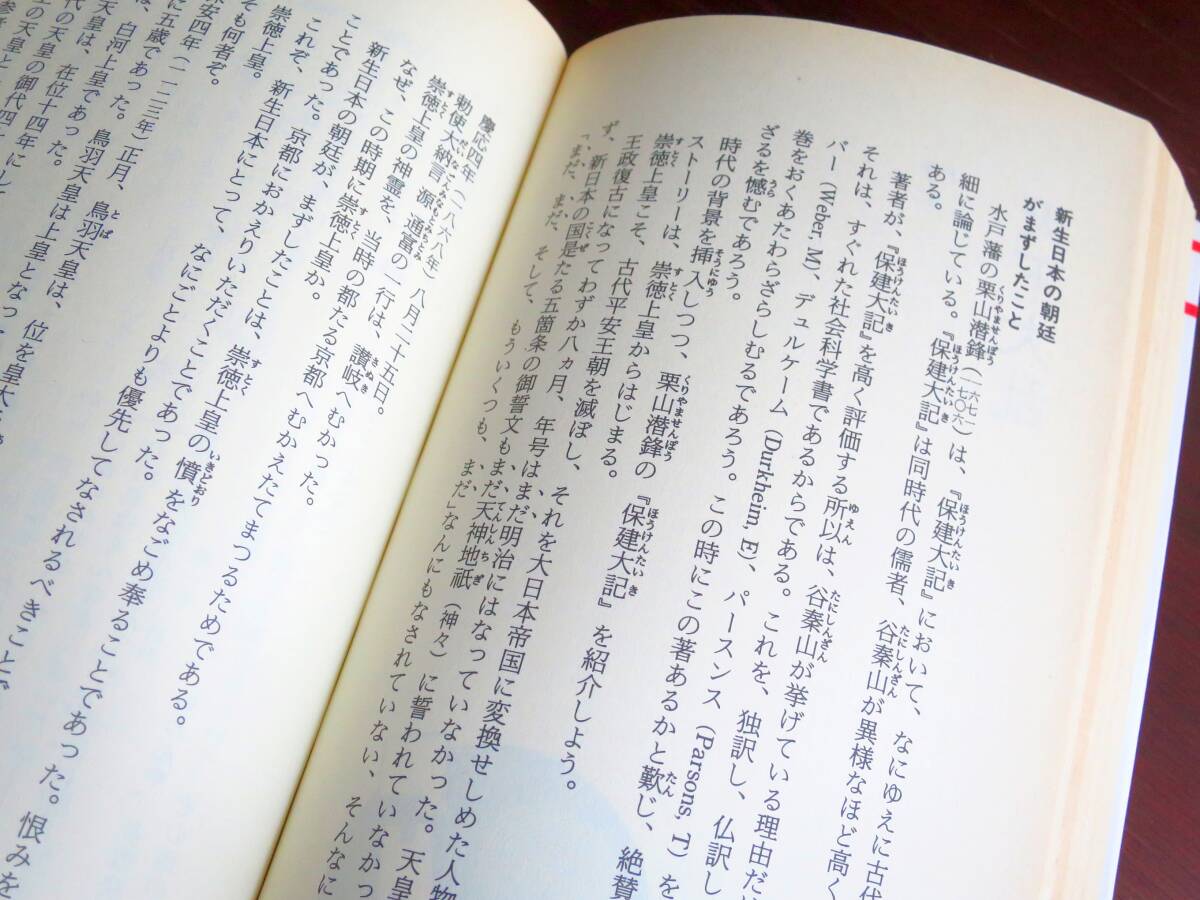 新生日本の朝廷
がまずしたこと
水戸藩の栗山潜鋒(一六七一一七〇六)は、『保建大記』において、なにゆえに古代
細に論じている。『保建大記』は同時代の儒者、谷秦山が異様なほど高く
ある。
著者が、『保建大記』を高く評価する所以は、谷秦山が挙げている理由だけ
それは、すぐれた社会科学書であるからである。これを、独訳し、仏訳し
バー(Weber, M)、デュルケーム(Durkheim, E)、パースンス(Parsons, T)を
巻をおくあたわらざらしむるであろう。この時にこの著あるかと歎じ、絶賛
ざるを憾むであろう。
時代の背景を挿入しつつ、栗山潜鋒の『保建大記』を紹介しよう。
ストーリーは、崇徳上皇からはじまる。
崇徳上皇こそ、古代平安王朝を滅ぼし、それを大日本帝国に変換せしめた人物
王政復古になってわずか八ヵ月、年号は、まだ明治にはなっていなかった。天皇
ず、新日本の国是たる五箇条の御誓文も、まだ天神地祇(神々)に誓われていなかっ
「まだ、まだ、そして、もういくつも、まだ」なんにもなされていない、そんなに
慶応四年(一八六八年)八月二十五日。
勅使大納言源通富の一行は、讃岐へむかった。
崇徳上皇の神霊を、当時の都たる京都へむかえたてまつるためである。
なぜ、この時期に崇徳上皇か。
新生日本の朝廷が、まずしたことは、崇徳上皇の憤をなごめ奉ることであった。
ことであった。京都におかえりいただくことであった。
これぞ、新生日本にとって、なにごとよりも優先してなされるべきことで
崇徳上皇。
そも何者ぞ。
保安四年(一一二三年)正月、鳥羽天皇は、位を皇太
に五歳であった。
は、白河上皇であった。鳥羽天皇は上皇となっ
天皇は、在位十四年にし
代の天皇の御代四